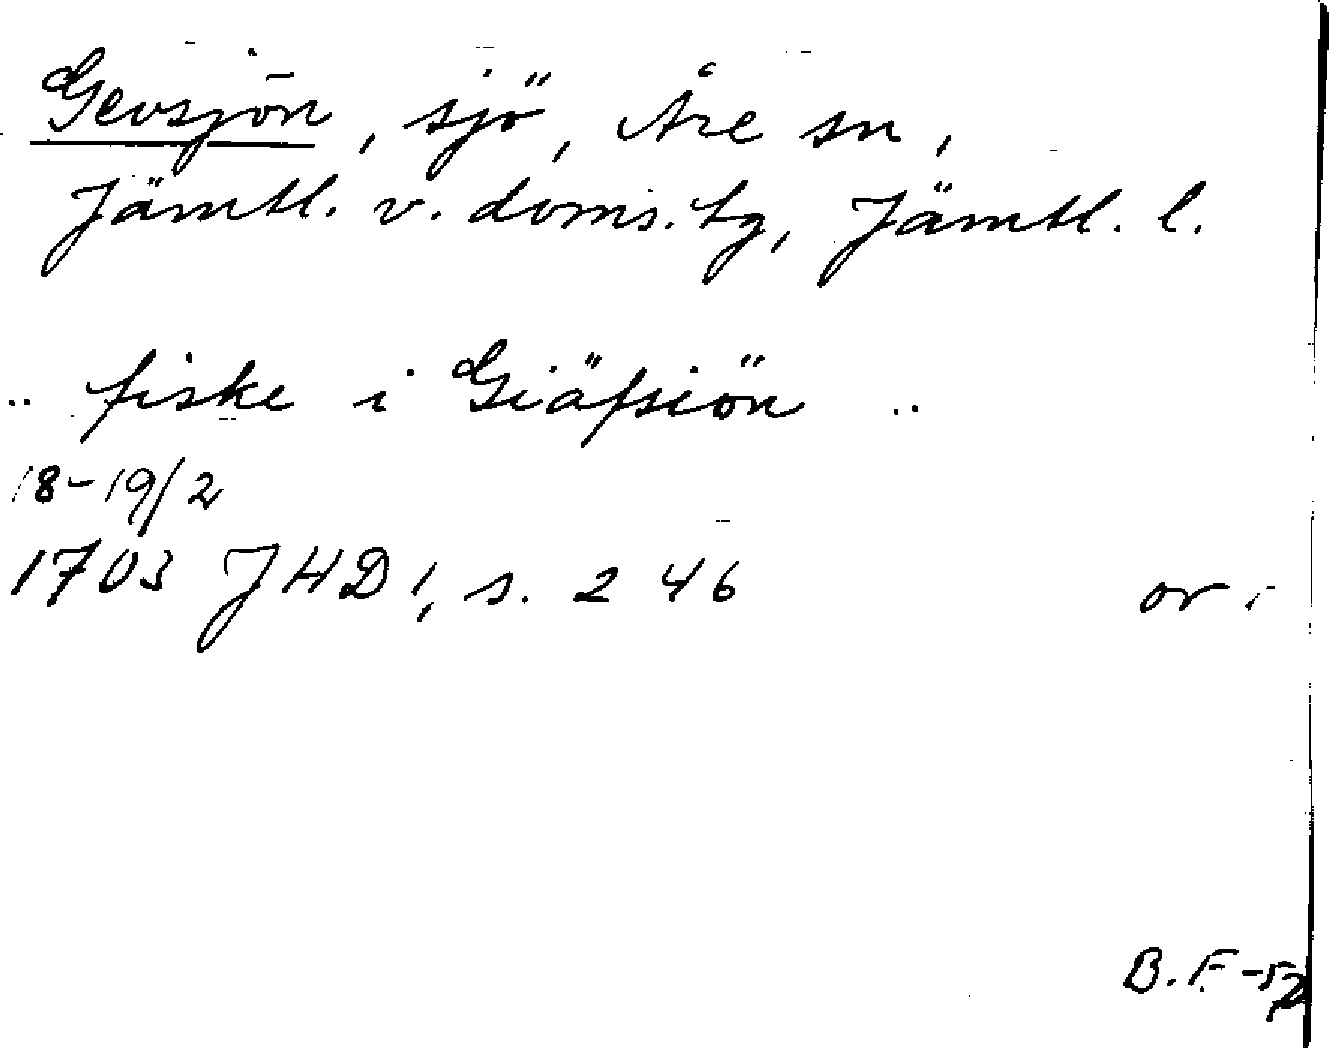 Gevsjön, sjö, Åre sn,
Jämtl. v. doms. tg, Jämtl. l.
.. fiske i Giäfsiön ..
18-19/2
1703 JHD 1, s. 246 or.
B. F. -52